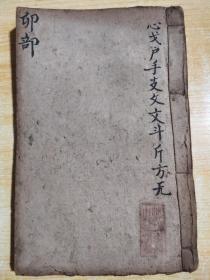 心戈户手支攴文斗斤方无
卯部